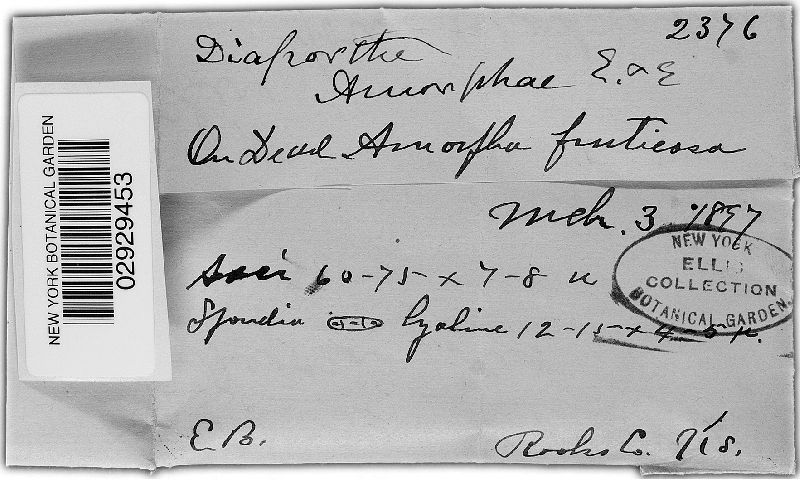 2376
Diaporthe
Amorphae E. & E
On Dead Amorpha fruticosa
Mch. 3 1897
Asci 60-75 x 7-8 u
Sporidia hyaline 12-15 x 4-5 µ.
E. B.
Rooks Co. Ks.
NEW YORK
ELLIS
COLLECTION
BOTANICAL GARDEN.
NEW YORK BOTANICAL GARDEN
02929453